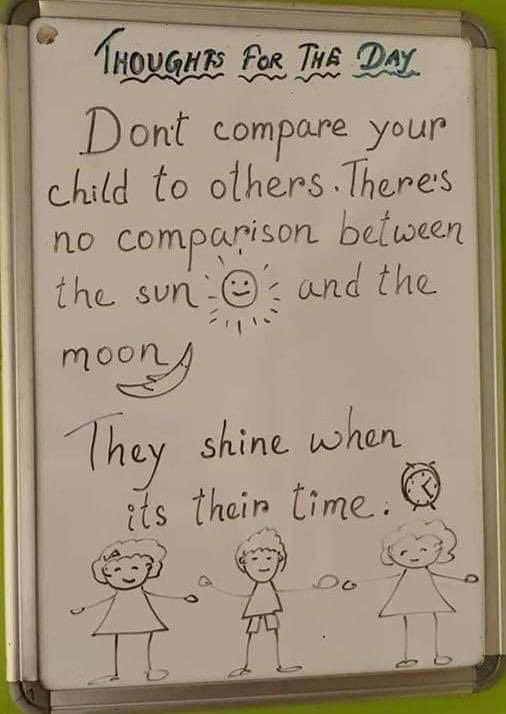 THOUGHTS FOR THE DAY
Don't compare your
child to others. There's
no comparison between
the sun and the
moon
They shine when
its their time.